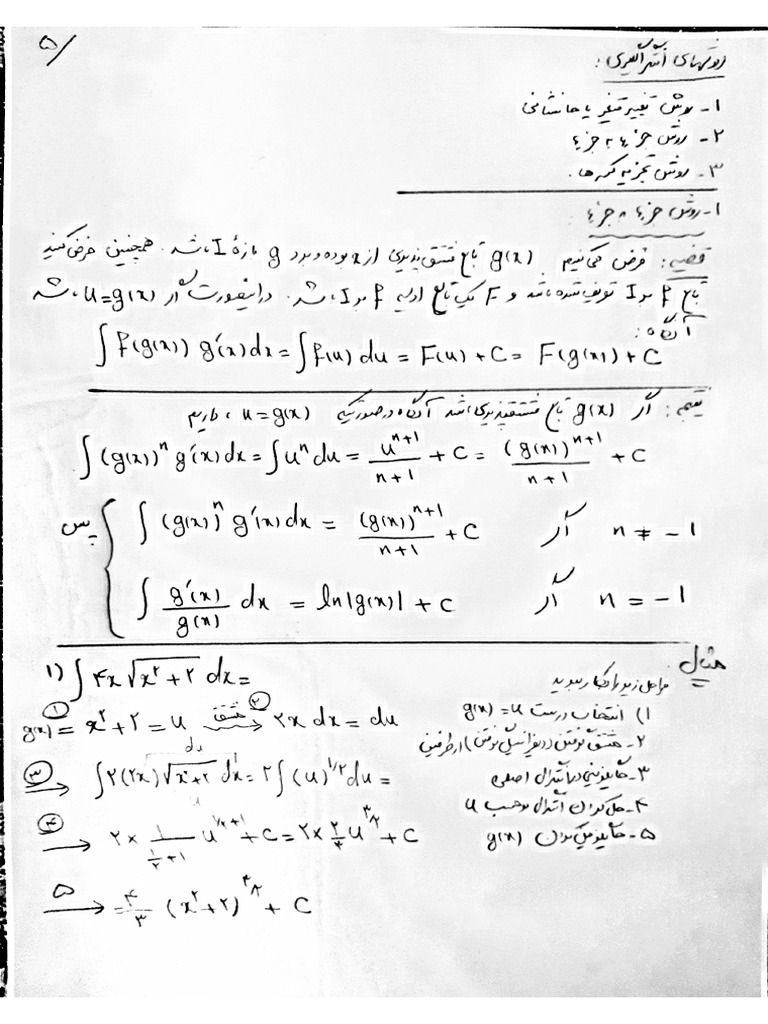 ۵/
روشهای انتگرالگیری:
۱- روش تغییر متغیر یا جانشانی
۲- روش جزء به جزء
۳- روش تجزیه کسرها.
۱- روش جزء به جزء
قضیه: فرض می‌کنیم g(x) تابع مشتق پذیری از x بوده و برد g بازهٔ I باشد. همچنین فرض کنید
تابع f بر I تعریف شده باشد و F یک تابع اولیه f بر I باشد. در اینصورت اگر u=g(x) باشد
آنگاه:
∫ f(g(x)) g′(x)dx = ∫ f(u) du = F(u) + C = F(g(x)) + C
نتیجه: اگر g(x) تابع مشتقپذیری باشد آنگاه در صورتیکه u=g(x)، داریم
∫ (g(x))ⁿ g′(x)dx = ∫ uⁿ du = uⁿ⁺¹/(n+1) + C = (g(x))ⁿ⁺¹/(n+1) + C
پس { ∫ (g(x))ⁿ g′(x)dx = (g(x))ⁿ⁺¹/(n+1) + C اگر n ≠ -1
∫ g′(x)/g(x) dx = ln|g(x)| + C اگر n = -1
مثال
۱) ∫ ۴x√(x²+۲) dx =
مراحل زیر را بکار ببرید
۱) انتخاب درست u=g(x)
۲- مشتق گرفتن (دیفرانسیل گرفتن) از طرفین
۳- جایگزینی در انتگرال اصلی
۴- حل کردن انتگرال برحسب u
۵- جایگزین کردن g(x)
① g(x) = x²+۲ = u مشتق ② → ۲x dx = du
③ → ∫۲(۲x)√(x²+۲) dx = ۲∫(u)^۱/۲ du =
du
u
④ → ۲× ۱/(۱/۲+۱) u^(۱/۲+۱) + C = ۲× ۲/۳ u^۳/۲ + C
۵ → = ۴/۳ (x²+۲)^۳/۲ + C